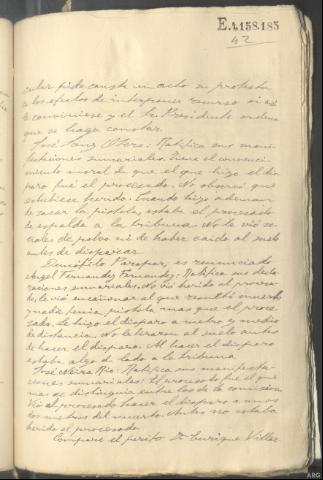 E.4.158.185
42
cular pide conste en acta su protesta
a los efectos de interponer recurso si asi
le conviniese y el Sr. Presidente ordena
que se haga constar.
José Sanz Otero: Ratifica sus mani-
festaciones sumariales. Tiene el convenci-
miento moral de que el que hizo el dis-
paro fué el procesado. No observó que
estubiese herido. Cuando hizo ademan
de sacar la pistola, estaba el procesado
de espalda a la tribuna. No le vió se-
ñales de polvo ni de haber caido al suelo
antes de disparar.
Teméfilo Parapar, es renunciado
Angel Fernandez Fernandez: Ratifica sus decla-
raciones sumariales. No vió herido al procesa-
do, le vió encañonar al que resultó muerto
y nadie tenia pistola mas que el proce-
sado. Le hizo el disparo a metro y medio
de distancia. No le tiraron al suelo antes
de hacer el disparo. Al hacer el disparo
estaba algo de lado a la tribuna
José Neira Rio: Ratifica sus manifesta-
ciones sumariales: El procesado fué el que
mas se distinguia entre los de la comision
Vió al procesado hacer el disparo a unos
dos metros del muerto. Antes no estaba
herido el procesado.
Compare el perito D. Enrique Villar
ARG